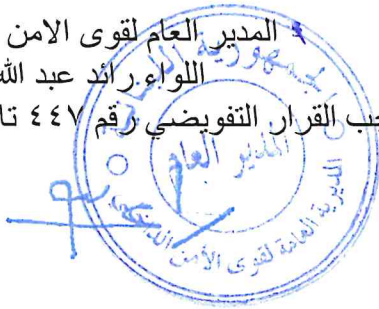 المدير العام لقوى الامن
اللواء رائد عبد الله
جب القرار التفويضي رقم ٤٤٧ تا
الجمهورية اللبنانية
المدير العام
المديرية العامة لقوى الأمن الداخلي